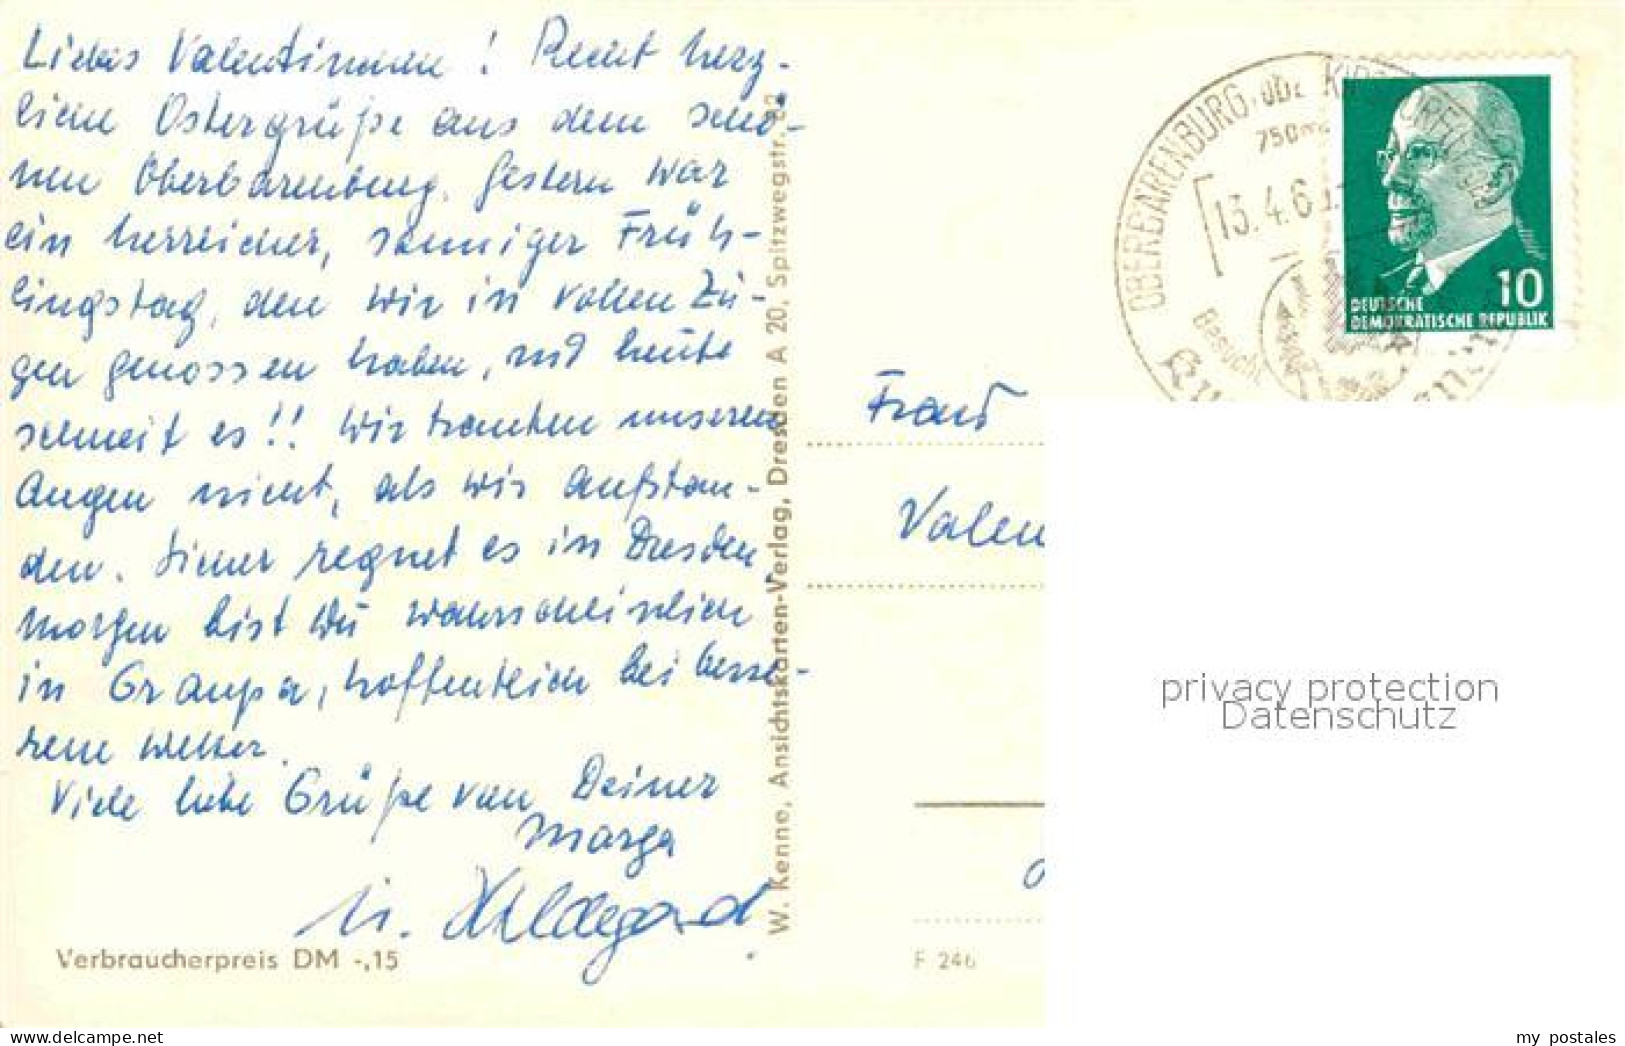 Liebes Valentinchen! Recht herz-
liche Ostergrüße aus dem schö-
nen Oberbärenburg. Gestern war
ein herrlicher, sonniger Früh-
lingstag, den wir in vollen Zü-
gen genossen haben, und heute
schneit es!! Wir trauten unseren
Augen nicht, als wir aufstan-
den. Sicher regnet es in Dresden,
morgen bist Du wahrscheinlich
in Graupa, hoffentlich bei besse-
rem Wetter.
Viele liebe Grüße von Deiner
Marga
u. Hildegard.
Verbraucherpreis DM -,15
W. Kenne, Ansichtskarten-Verlag, Dresden A 20, Spitzwegstr.
OBERBÄRENBURG, ÜBZ
750m
13.4.6
Besucht
DEUTSCHE
DEMOKRATISCHE REPUBLIK
10
Frau
Valen
F 246
privacy protection
Datenschutz
www.delcampe.net
my_postales